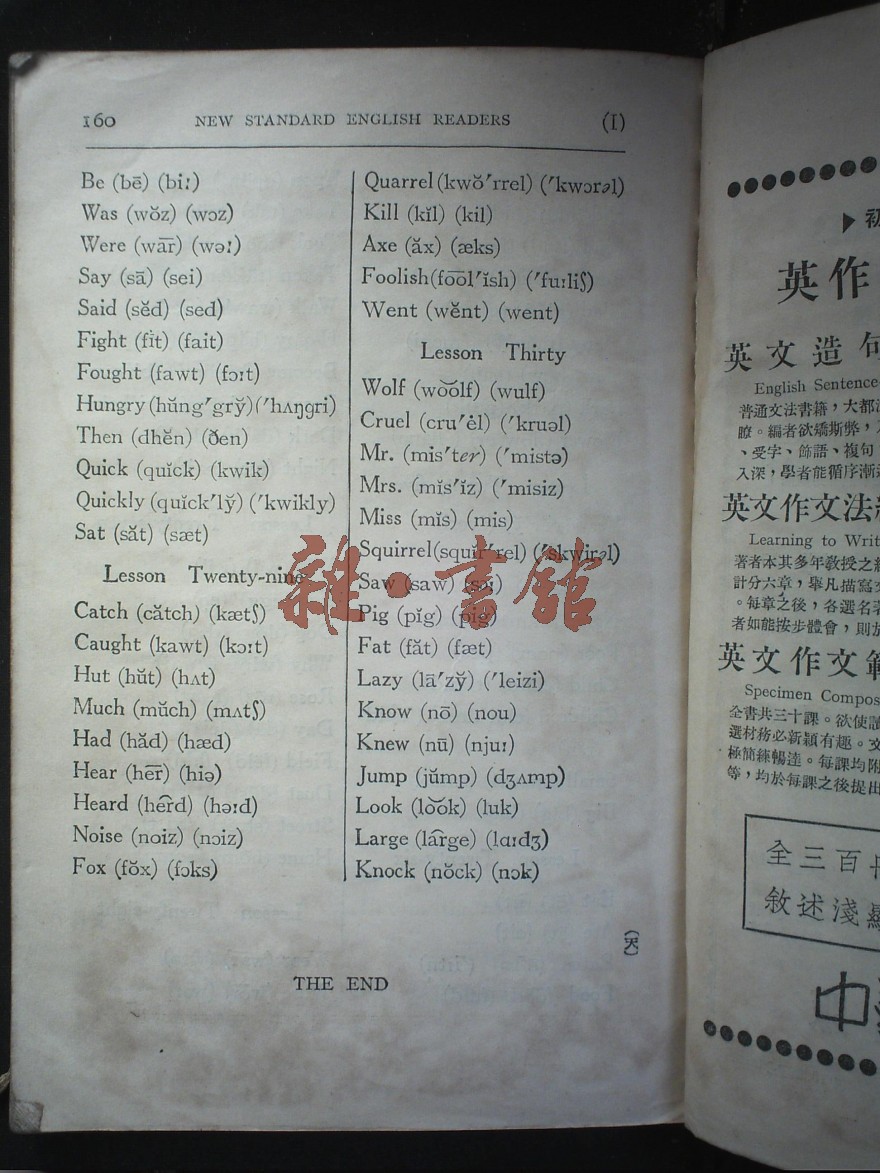 160 NEW STANDARD ENGLISH READERS (I)
Be (bē) (biː)
Was (wŏz) (wɔz)
Were (wa͞r) (wəː)
Say (sā) (sei)
Said (sĕd) (sed)
Fight (fīt) (fait)
Fought (fawt) (fɔːt)
Hungry (hŭng′grў) (′hʌŋgri)
Then (dhĕn) (ðen)
Quick (quĭck) (kwik)
Quickly (quĭck′lў) (′kwikly)
Sat (săt) (sæt)
Lesson Twenty-nine
Catch (cătch) (kætʃ)
Caught (kawt) (kɔːt)
Hut (hŭt) (hʌt)
Much (mŭch) (mʌtʃ)
Had (hăd) (hæd)
Hear (he͞r) (hiə)
Heard (he͡rd) (həːd)
Noise (noiz) (nɔiz)
Fox (fŏx) (fɔks)
Quarrel (kwŏ′rrel) (′kwɔrəl)
Kill (kĭl) (kil)
Axe (ăx) (æks)
Foolish (fo͞ol′ĭsh) (′fuːliʃ)
Went (wĕnt) (went)
Lesson Thirty
Wolf (wo͝olf) (wulf)
Cruel (cru′ėl) (′kruəl)
Mr. (mis′ter) (′mistə)
Mrs. (mĭs′ĭz) (′misiz)
Miss (mĭs) (mis)
Squirrel (squĭr′rel) (′skwirəl)
Saw (saw) (sɔː)
Pig (pĭg) (pig)
Fat (făt) (fæt)
Lazy (lā′zў) (′leizi)
Know (nō) (nou)
Knew (nū) (njuː)
Jump (jŭmp) (dʒʌmp)
Look (lo͝ok) (luk)
Large (la͡rge) (lɑːdʒ)
Knock (nŏck) (nɔk)
(天)
THE END
雜·書館
▶初
英作
英文造句
English Sentence
普通文法書籍，大都
瞭。編者欲矯斯弊，
、受字、飾語、複句
入深，學者能循序漸
英文作文法
Learning to Writ
著者本其多年教授之經
計分六章，舉凡描寫
。每章之後，各選名
者如能按步體會，則
英文作文範
Specimen Compos
全書共三十課。欲使讀
選材務必新穎有趣。文
極簡練暢達。每課均附
等，均於每課之後提出
全三百
敘述淺顯
中